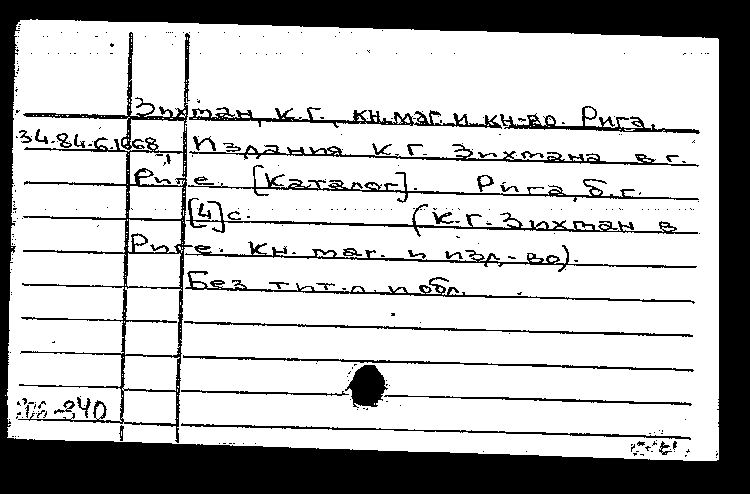 Зихман, К.Г., кн. маг. и кн-во. Рига.
34.84.6.1668 Издания К.Г. Зихмана в г.
Риге. [Каталог]. Рига, б.г.
[4] с. (К.Г. Зихман в
Риге. Кн. маг. и изд-во).
Без тит. л. и обл.
-340